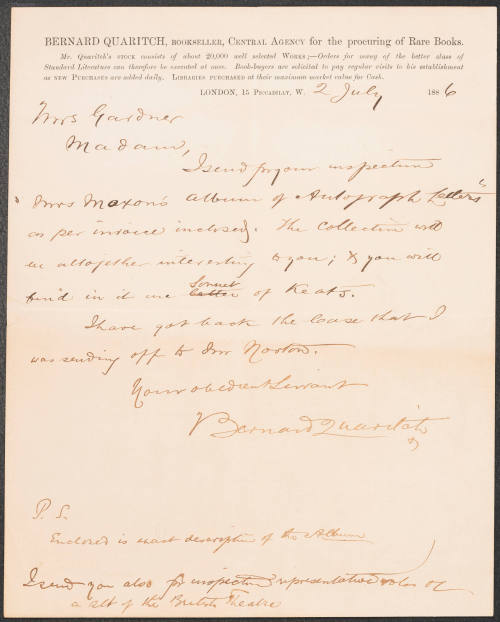 BERNARD QUARITCH, BOOKSELLER, CENTRAL AGENCY for the procuring of Rare Books.
Mr. Quaritch's STOCK consists of about 20,000 well selected WORKS;—Orders for many of the better class of
Standard Literature can therefore be executed at once. Book-buyers are solicited to pay regular visits to his establishment
as NEW PURCHASES are added daily. LIBRARIES PURCHASED at their maximum market value for Cash.
LONDON, 15 PICCADILLY, W. 2 July 1886
Mrs Gardner
Madam,
I send for your inspection
Mrs Moxon's Album of Autograph Letters"
as per invoice inclosed. The collection will
be altogether interesting to you; & you will
find in it one letter Sonnet of Keats.
I have got back the lease that I
was sending off to Mr Norton.
Your obedient Servant
Bernard Quaritch
P. S.
Enclosed is exact description of the Album
I send you also for inspection representative vols of
a set of the British Theatre